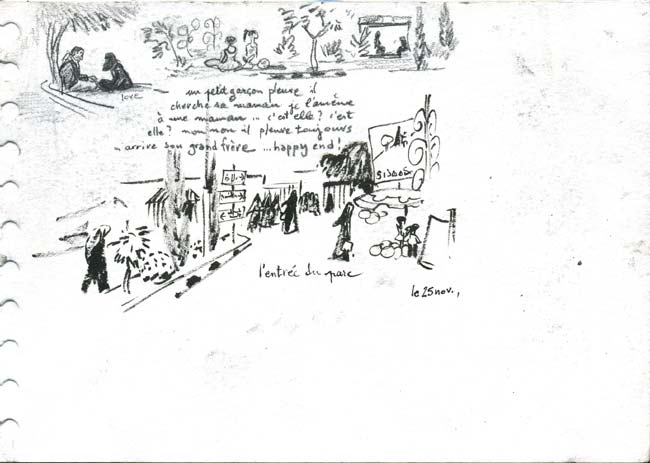 love
un petit garçon pleure il
cherche sa maman je l'amène
à une maman ... c'est elle? c'est
elle? non non il pleure toujours
arrive son grand frère ... happy end!
l'entrée du parc
le 25 nov.,